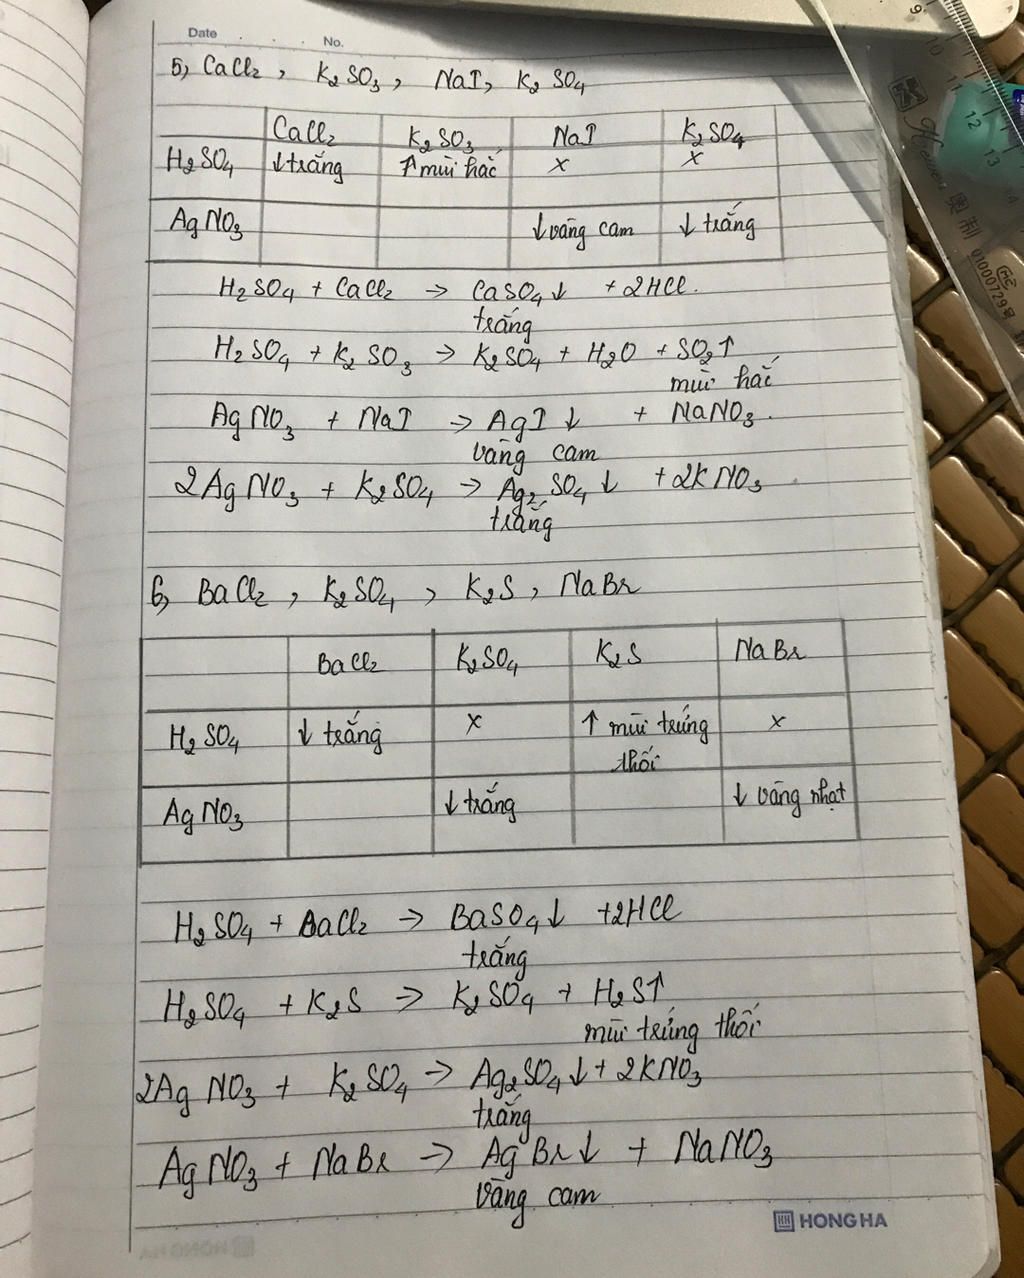 Date . . . No.
5, CaCl2, K2SO3, NaI, K2SO4
CaCl2 K2SO3 NaI K2SO4
H2SO4 ↓trắng ↑mùi hắc x x
AgNO3 ↓vàng cam ↓ trắng
H2SO4 + CaCl2 → CaSO4↓ + 2HCl.
trắng
H2SO4 + K2SO3 → K2SO4 + H2O + SO2↑
mùi hắc
AgNO3 + NaI → AgI ↓ + NaNO3.
vàng cam
2AgNO3 + K2SO4 → Ag2SO4 ↓ + 2KNO3
trắng
6, BaCl2, K2SO4, K2S, NaBr
BaCl2 K2SO4 K2S NaBr
H2SO4 ↓ trắng x ↑ mùi trứng x
thối
AgNO3 ↓ trắng ↓ vàng nhạt
H2SO4 + BaCl2 → BaSO4↓ +2HCl
trắng
H2SO4 + K2S → K2SO4 + H2S↑
mùi trứng thối
2AgNO3 + K2SO4 → Ag2SO4↓ + 2KNO3
trắng
AgNO3 + NaBr → AgBr↓ + NaNO3
vàng cam
HONG HA
9
10
11
12
13
14
01000729号